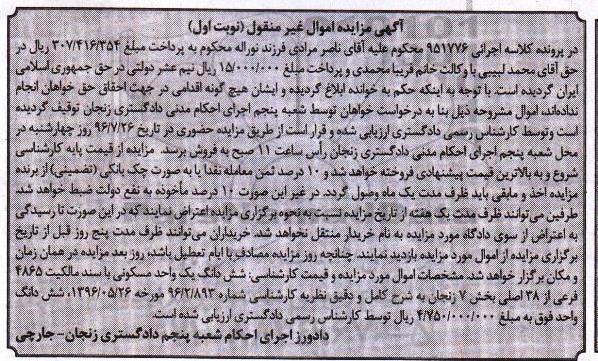 آگهی مزایده اموال غیر منقول (نوبت اول)
در پرونده کلاسه اجرائی ۹۵۱۷۷۶ محکوم علیه آقای ناصر مرادی فرزند نوراله محکوم به پرداخت مبلغ ۳۰۷/۴۱۶/۳۵۴ ریال در
حق آقای محمد لبیبی با وکالت خانم فریبا محمدی و پرداخت مبلغ ۱۵/۰۰۰/۰۰۰ ریال نیم عشر دولتی در حق جمهوری اسلامی
ایران گردیده است. با توجه به اینکه حکم به خوانده ابلاغ گردیده و ایشان هیچ گونه اقدامی در جهت احقاق حق خواهان انجام
نداده‌اند، اموال مشروحه ذیل بنا به درخواست خواهان توسط شعبه پنجم اجرای احکام مدنی دادگستری زنجان توقیف گردیده
است و توسط کارشناس رسمی دادگستری ارزیابی شده و قرار است از طریق مزایده حضوری در تاریخ ۹۶/۷/۲۶ روز چهارشنبه در
محل شعبه پنجم اجرای احکام مدنی دادگستری زنجان رأس ساعت ۱۱ صبح به فروش برسد. مزایده از قیمت پایه کارشناسی
شروع و به بالاترین قیمت پیشنهادی فروخته خواهد شد و ۱۰ درصد ثمن معامله نقداً یا به صورت چک بانکی (تضمینی) از برنده
مزایده اخذ و مابقی باید ظرف مدت یک ماه وصول گردد. در غیر این صورت ۱۰ درصد مأخوذه به نفع دولت ضبط خواهد شد.
طرفین می‌توانند ظرف مدت یک هفته از تاریخ مزایده نسبت به نحوه برگزاری مزایده اعتراض نمایند که در این صورت تا رسیدگی
به اعتراض از سوی دادگاه مورد مزایده به نام خریدار منتقل نخواهد شد. خریداران می‌توانند ظرف مدت پنج روز قبل از تاریخ
برگزاری مزایده از اموال مورد مزایده بازدید نمایند. چنانچه روز مزایده مصادف با ایام تعطیل باشد، روز بعد مزایده در همان زمان
و مکان برگزار خواهد شد. مشخصات اموال مورد مزایده و قیمت کارشناسی: شش دانگ یک واحد مسکونی با سند مالکیت ۴۸۶۵
فرعی از ۳۸ اصلی بخش ۷ زنجان به شرح کامل و دقیق نظریه کارشناسی شماره ۹۶/۲/۸۹۳ مورخه ۱۳۹۶/۰۵/۲۶، شش دانگ
واحد فوق به مبلغ ۴/۷۵۰/۰۰۰/۰۰۰ ریال توسط کارشناس رسمی دادگستری ارزیابی شده است.
دادورز اجرای احکام شعبه پنجم دادگستری زنجان- جارچی